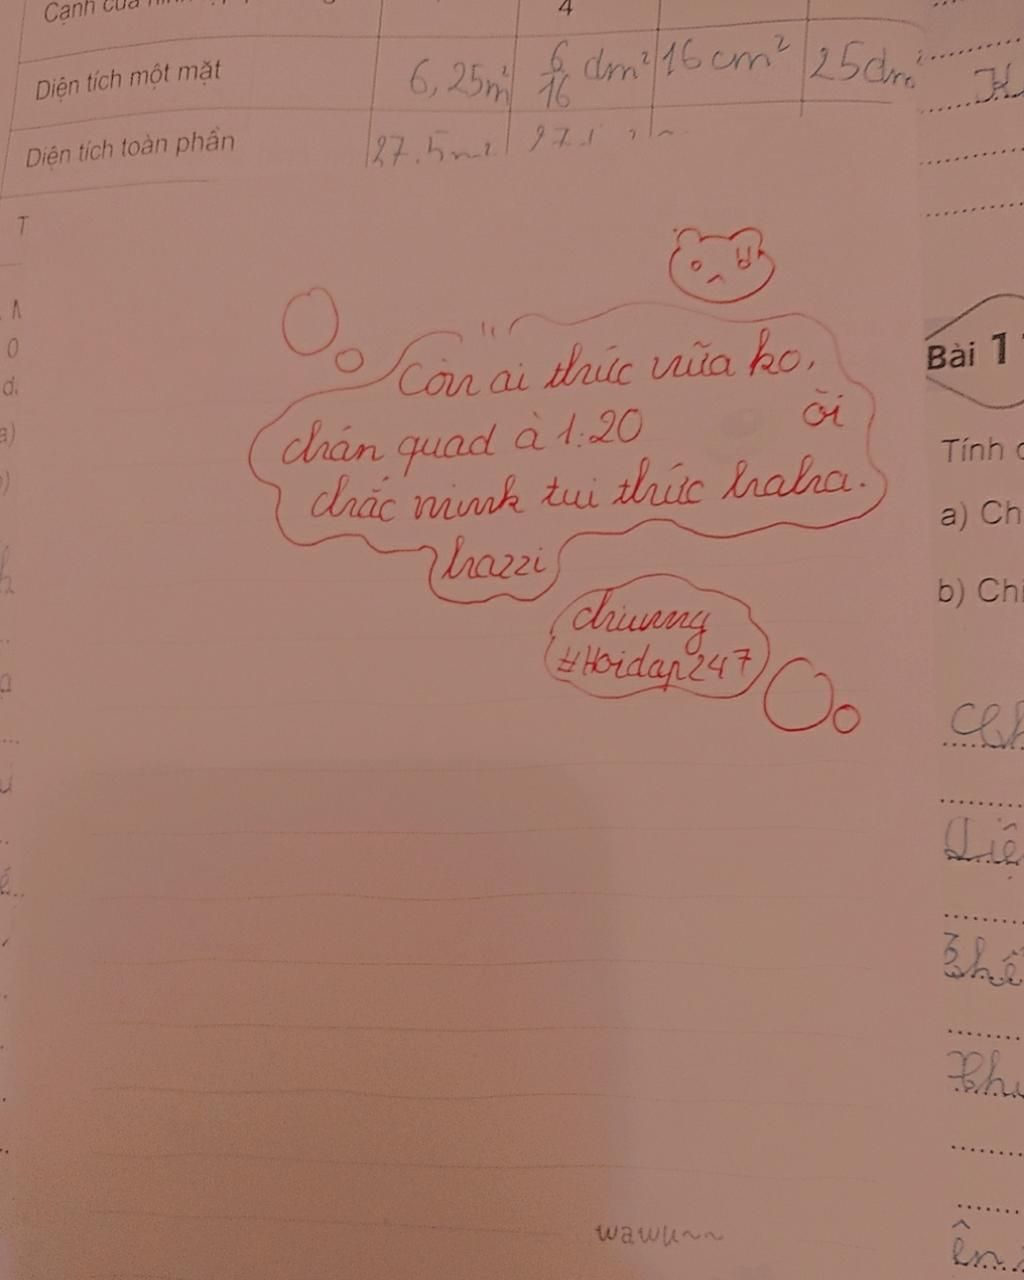 Cạnh của
4
Diện tích một mặt 6,25m² 6/16 dm² 16cm² 25dm²
Diện tích toàn phần 27.5m²
T
Còn ai thức nữa ko,
chán quad à 1:20 ời
chắc mình tui thức haha.
hazzi
chiuwng
#Hoidap247
Bài 1
Tính
a) Ch
b) Chi
wawu~~